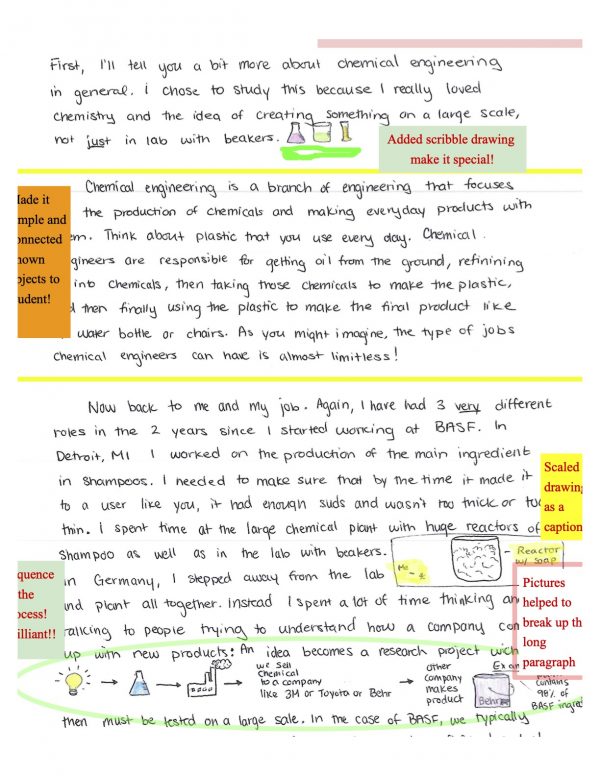 First, I'll tell you a bit more about chemical engineering
in general. I chose to study this because I really loved
chemistry and the idea of creating something on a large scale,
not just in lab with beakers.
Added scribble drawing
make it special!
Made it
mple and
onnected
nown
bjects to
udent!
Chemical engineering is a branch of engineering that focuses
the production of chemicals and making everyday products with
em. Think about plastic that you use every day. Chemical
gineers are responsible for getting oil from the ground, refinining
into chemicals, then taking those chemicals to make the plastic,
d then finally using the plastic to make the final product like
water bottle or chairs. As you might imagine, the type of jobs
chemical engineers can have is almost limitless!
Now back to me and my job. Again, I have had 3 very different
roles in the 2 years since I started working at BASF. In
Detroit, MI I worked on the production of the main ingredient
in shampoos. I needed to make sure that by the time it made it
to a user like you, it had enough suds and wasn't too thick or too
thin. I spent time at the large chemical plant with huge reactors of
shampoo as well as in the lab with beakers.
Scaled
drawing
as a
caption
Me
Reactor
w/ soap
quence
the
ocess!
illiant!!
In Germany, I stepped away from the lab
and plant all together. Instead I spent a lot of time thinking an
talking to people trying to understand how a company con
up with new products. An idea becomes a research project wich
Pictures
helped to
break up th
long
paragraph
we sell
chemical
to a company
like 3M or Toyota or Behr
other
company
makes
product
Exam
Behr
contains
98% of
BASF ingred
then must be tested on a large sale. In the case of BASF, we typically